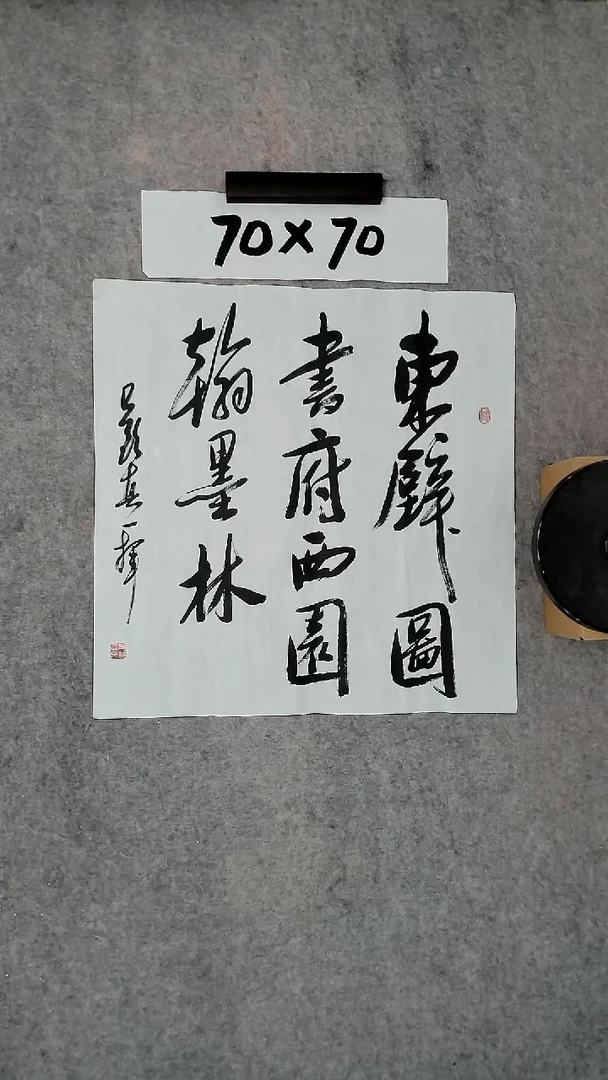 70×70
東壁圖
書府西園
翰墨林
真